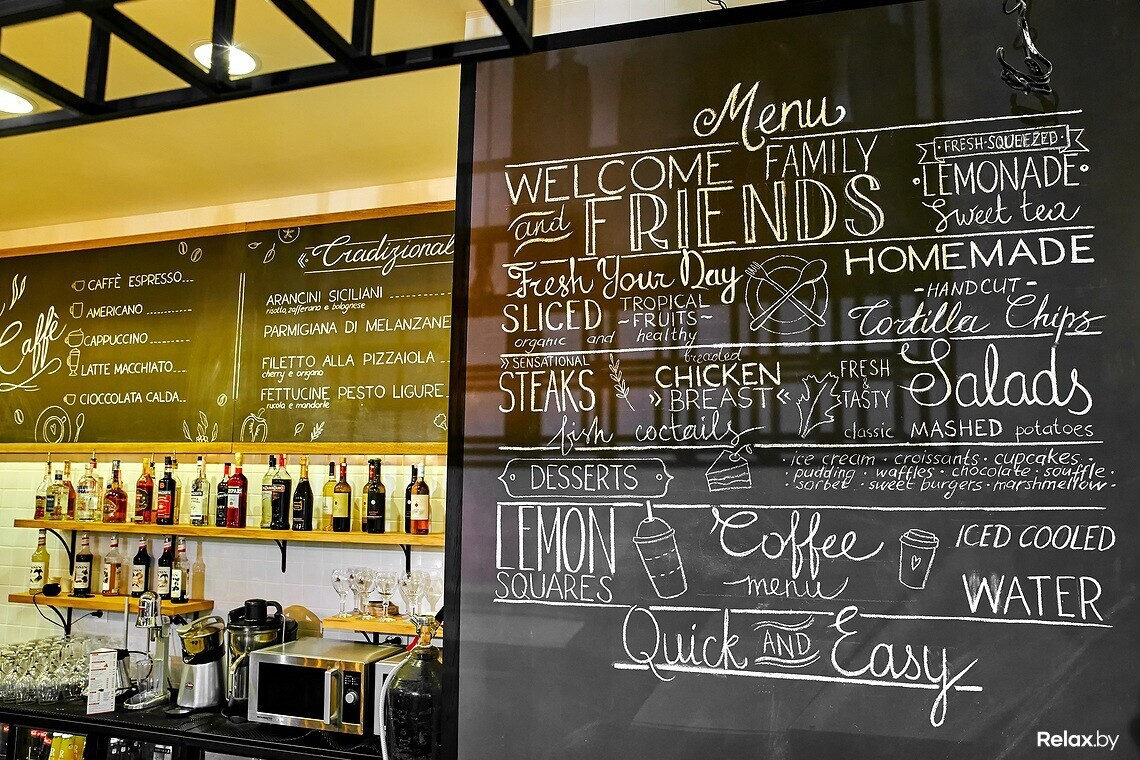 Caffè
CAFFÈ ESPRESSO...
AMERICANO ............
CAPPUCCINO ..........
LATTE MACCHIATO....
CIOCCOLATA CALDA...
Tradizional
ARANCINI SICILIANI ............
risotto, zafferano e bolognese
PARMIGIANA DI MELANZANE
FILETTO ALLA PIZZAIOLA ..
cherry e origano
FETTUCINE PESTO LIGURE
rucola e mandorle
Menu
WELCOME FAMILY
and FRIENDS
FRESH-SQUEEZED
LEMONADE
Sweet tea
Fresh Your Day
SLICED TROPICAL
~FRUITS~
organic and healthy
HOMEMADE
-HANDCUT-
Tortilla Chips
SENSATIONAL
STEAKS
breaded
CHICKEN
BREAST
fish coctails
FRESH
&
TASTY
Salads
classic MASHED potatoes
DESSERTS
· ice cream · croissants · cupcakes ·
pudding · waffles · chocolate · souffle ·
sorbet · sweet burgers · marshmellow ·
LEMON
SQUARES
Coffee
menu
ICED COOLED
WATER
Quick AND Easy
Relax.by